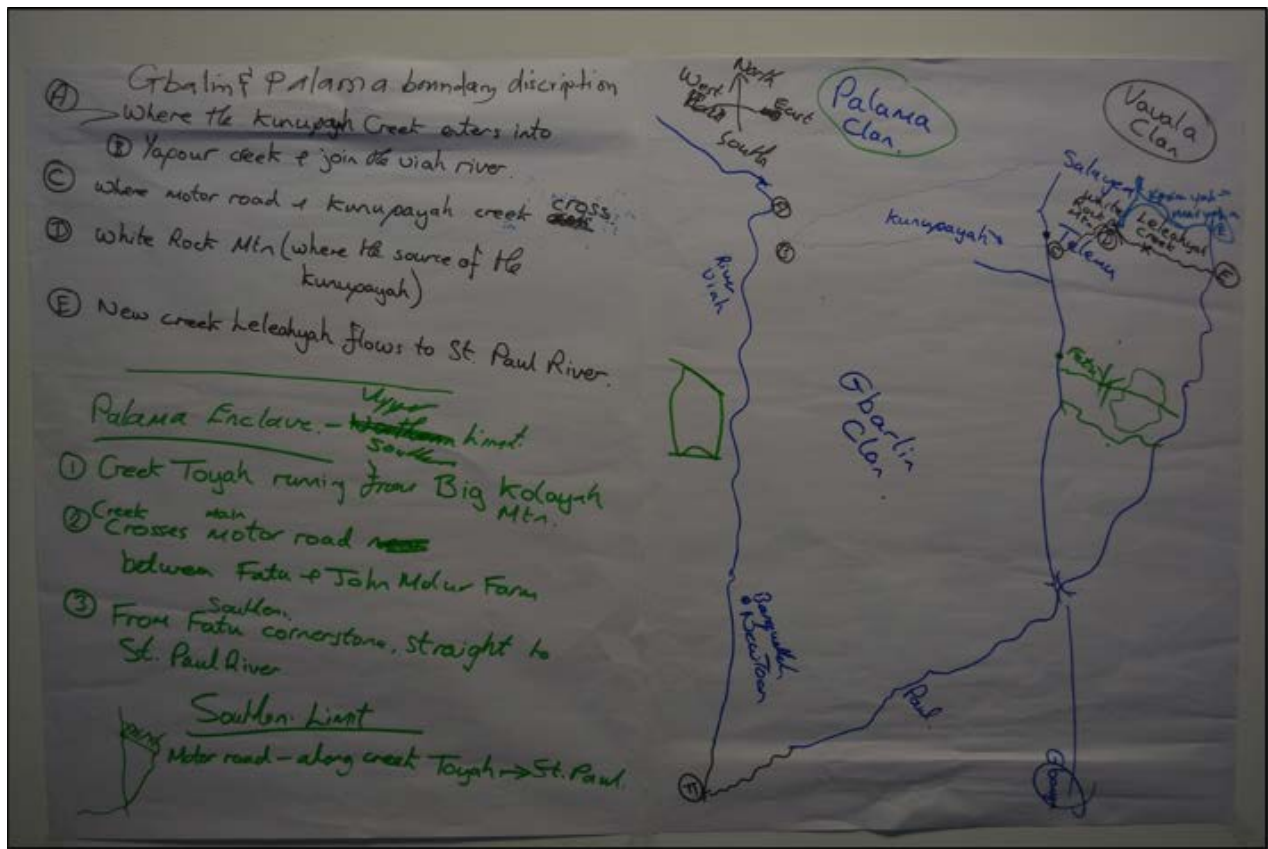 Gbalin & Palama boundary discription
(A) Where the Kunupayah Creek enters into
(B) Yapour creek & join the viah river.
(C) where motor road & Kunupayah creek cross
(D) White Rock Mtn (where the source of the
Kunupayah)
(E) New creek Leleahyah flows to St. Paul River.
Palama Enclave. - Upper Limit.
South
(1) Creek Toyah running from Big Kolayah
Mtn.
(2) Creek Crosses Main Motor road
between Fatu & John Molur Farm
(3) From Fatu Southern cornerstone, straight to
St. Paul River
Southern Limit
Motor road - along creek Toyah → St. Paul.
North
West
East
South
Palama
Clan.
Vavala
Clan
Salayea
White
Rock
Mtn
(D)
Leleahyah
Creek
(E)
Kunupayah
(C)
Telemu
River
Viah
Gbarlin
Clan
New Town
Paul